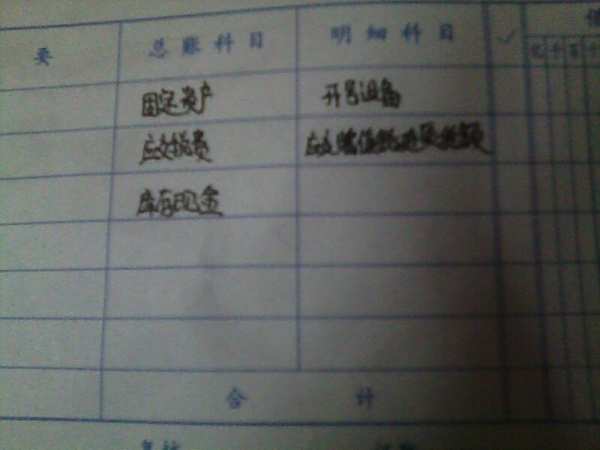 要 总账科目 明细科目 ✓ 借
亿 千 百 十
固定资产 开号设备
应交税费 应交增值税进项税额
库存现金
合 计